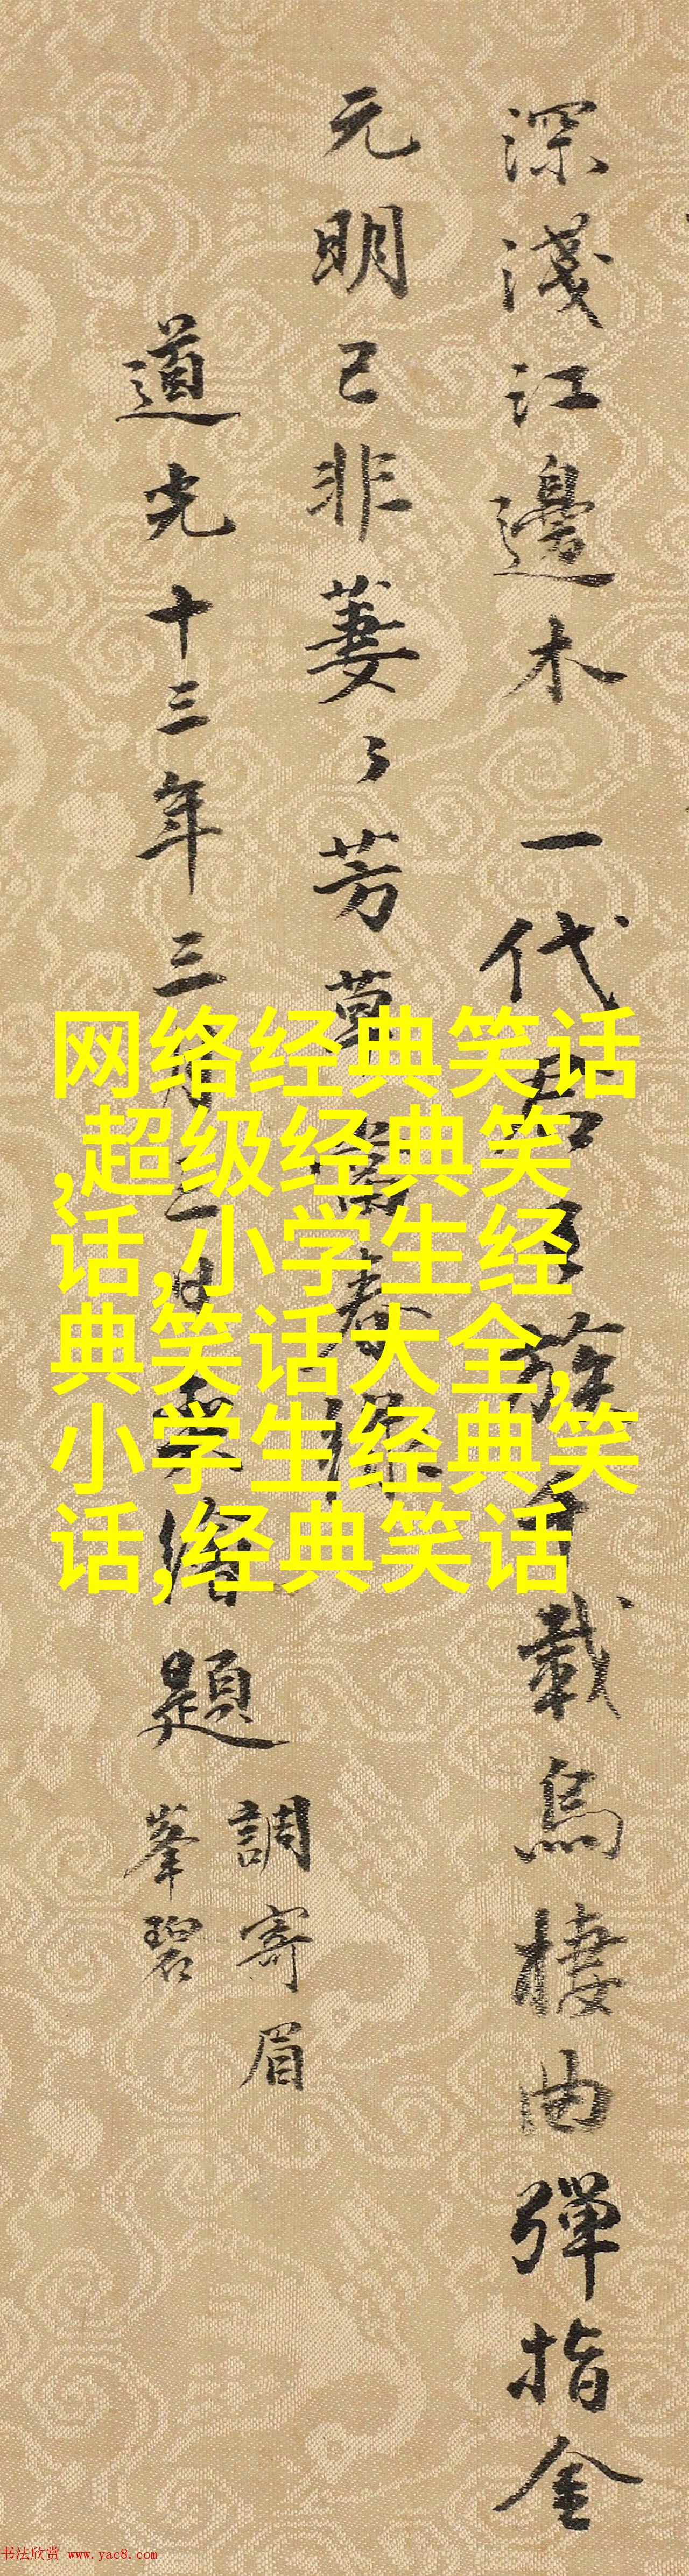 深淺江邊木一代名□族千載烏棲曲彈指金
元明已非萋々芳草當春緑
道光十三年三月三日□繪題
調寄眉
峯碧
网络经典笑话
,超级经典笑
话,小学生经
典笑话大全,
小学生经典笑
话,经典笑话
书法欣赏 www.yac8.com